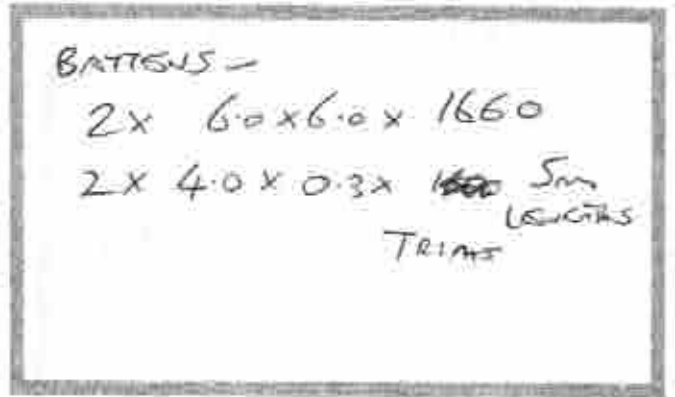 BATTENS –
2x 6.0x6.0x 1660
2x 4.0x0.3x 5m
LENGTHS
TRIMS